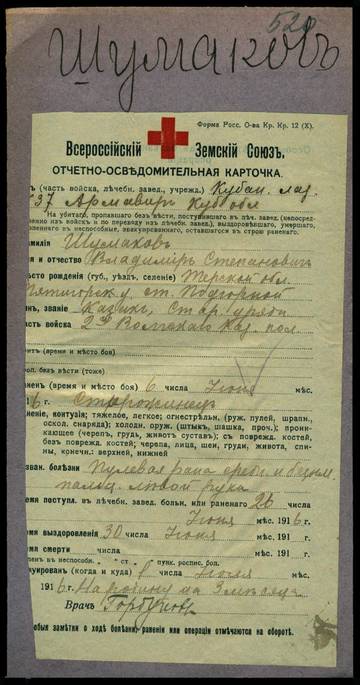 520
Шумаковъ
Форма Росс. О-ва Кр. Кр. 12 (X).
Всероссійскій Земскій Союзъ.
ОТЧЕТНО-ОСВѢДОМИТЕЛЬНАЯ КАРТОЧКА.
(часть войска, лѣчебн. завед., учрежд.) Кубан. лаз.
737 Армавир Куб обл
На убитаго, пропавшаго безъ вѣсти, поступившаго въ лѣч. завед. (непосред-
ственно изъ войскъ и по переводу изъ лѣчебн. завед.), выздоровѣвшаго, умершаго,
уволеннаго въ неспособные, эвакуированнаго, оставшагося въ строю раненаго.
амилія Шумаковъ
я и отчество Владиміръ Степановичъ
ѣсто рожденія (губ., уѣзд, селеніе) Терской обл.
Пятигорск у ст. Подгорной
нъ, званіе Казакъ, Стар. уряд
сть войска 2й Волгскаго Каз. пол.
итъ (время и мѣсто боя)
роп. безъ вѣсти (тоже)
ненъ (время и мѣсто боя) 6 числа Іюня мѣс.
6 г. Сторожинец
неніе, контузія: тяжелое, легкое; огнестрѣльн. (руж. пулей, шрапн.,
оскол. снаряда); холодн. оруж. (штыкъ, шашка, проч.); прони-
кающее (черепъ, грудь, животъ суставъ); съ поврежд. костей,
безъ поврежд. костей; черепа, лица, шеи, груди, живота, спи-
ны, конечн.: верхней, нижней
зван. болѣзни Пулевая рана средн. и безым.
пальц. лѣвой руки
емя поступл. въ лѣчебн. завед. больн. или раненаго 26
числа Іюня мѣс. 1916 г.
емя выздоровленія 30 числа Іюня мѣс. 1916 г.
емя смерти числа мѣс. 191 г.
лен въ неспособн. „ ст пунк. роспис. бол.
куированъ (когда и куда) 8 числа Іюля мѣс.
1916 г. На родину на 3 мѣсяца
Врачъ
обыя замѣтки о ходѣ болѣзни, раненія или операціи отмѣчаются на оборотѣ.